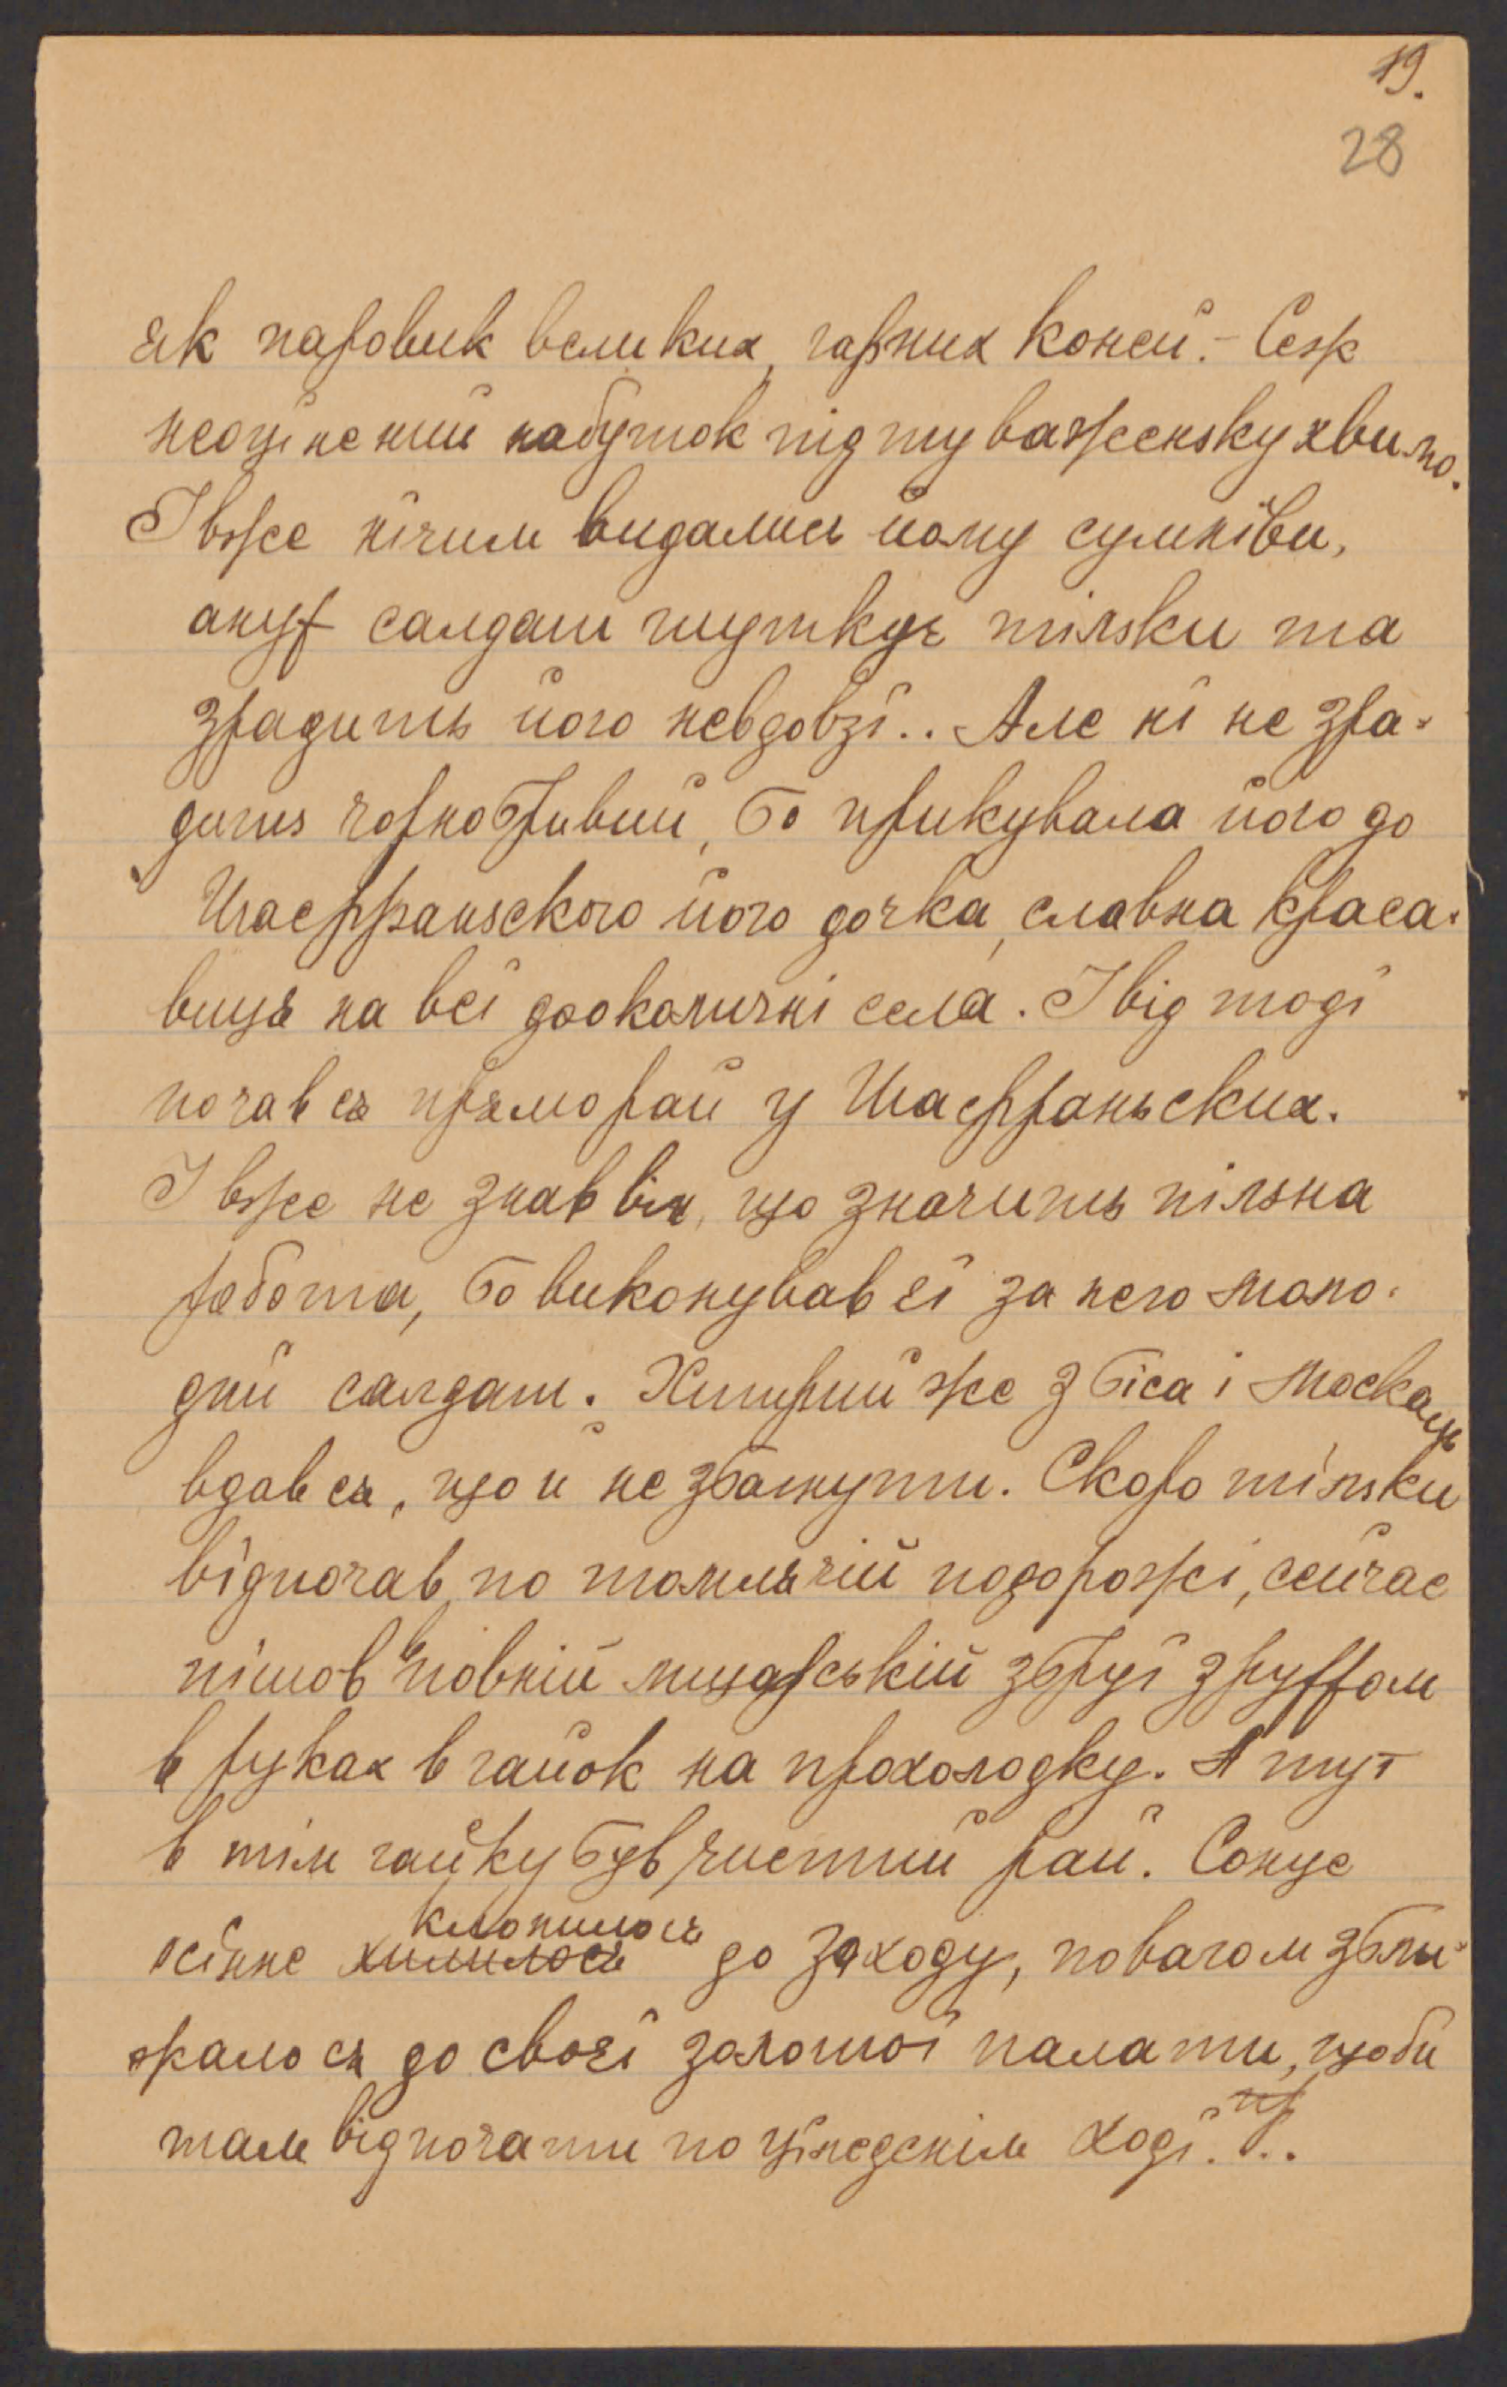 19.
28
як паровик великих, гарних коней. – Сеж
неоцінений набуток під ту важенську хвилю.
І вже нічим видались йому сумніви,
ануж салдат шуткує тілски та
зрадить його невдовзі.. Але ні не зра-
дить чорнобривий, бо прикувала його до
Шаффранського його дочка, славна краса-
виця на всі доокличні села. І від тоді
почався прямо рай у Шаффраньских.
І вже не знав він, що значить пільна
робота, бо виконував єї за него моло-
дий салдат. Хитрий же з біса і москаль
вдався, що й не збагнути. Скоро тілски
відпочав по томлячій подорожі, сейчас
пішов в повній лицарській збруї з руffом
в руках в гайок на прохолодку. А тут
в тім гайку був чистий рай. Сонце
клонилось
осінне хилилось до заходу, поволом збли-
жалося до своєї золотої палати, щоби
там відпочати по цілоденім ході...